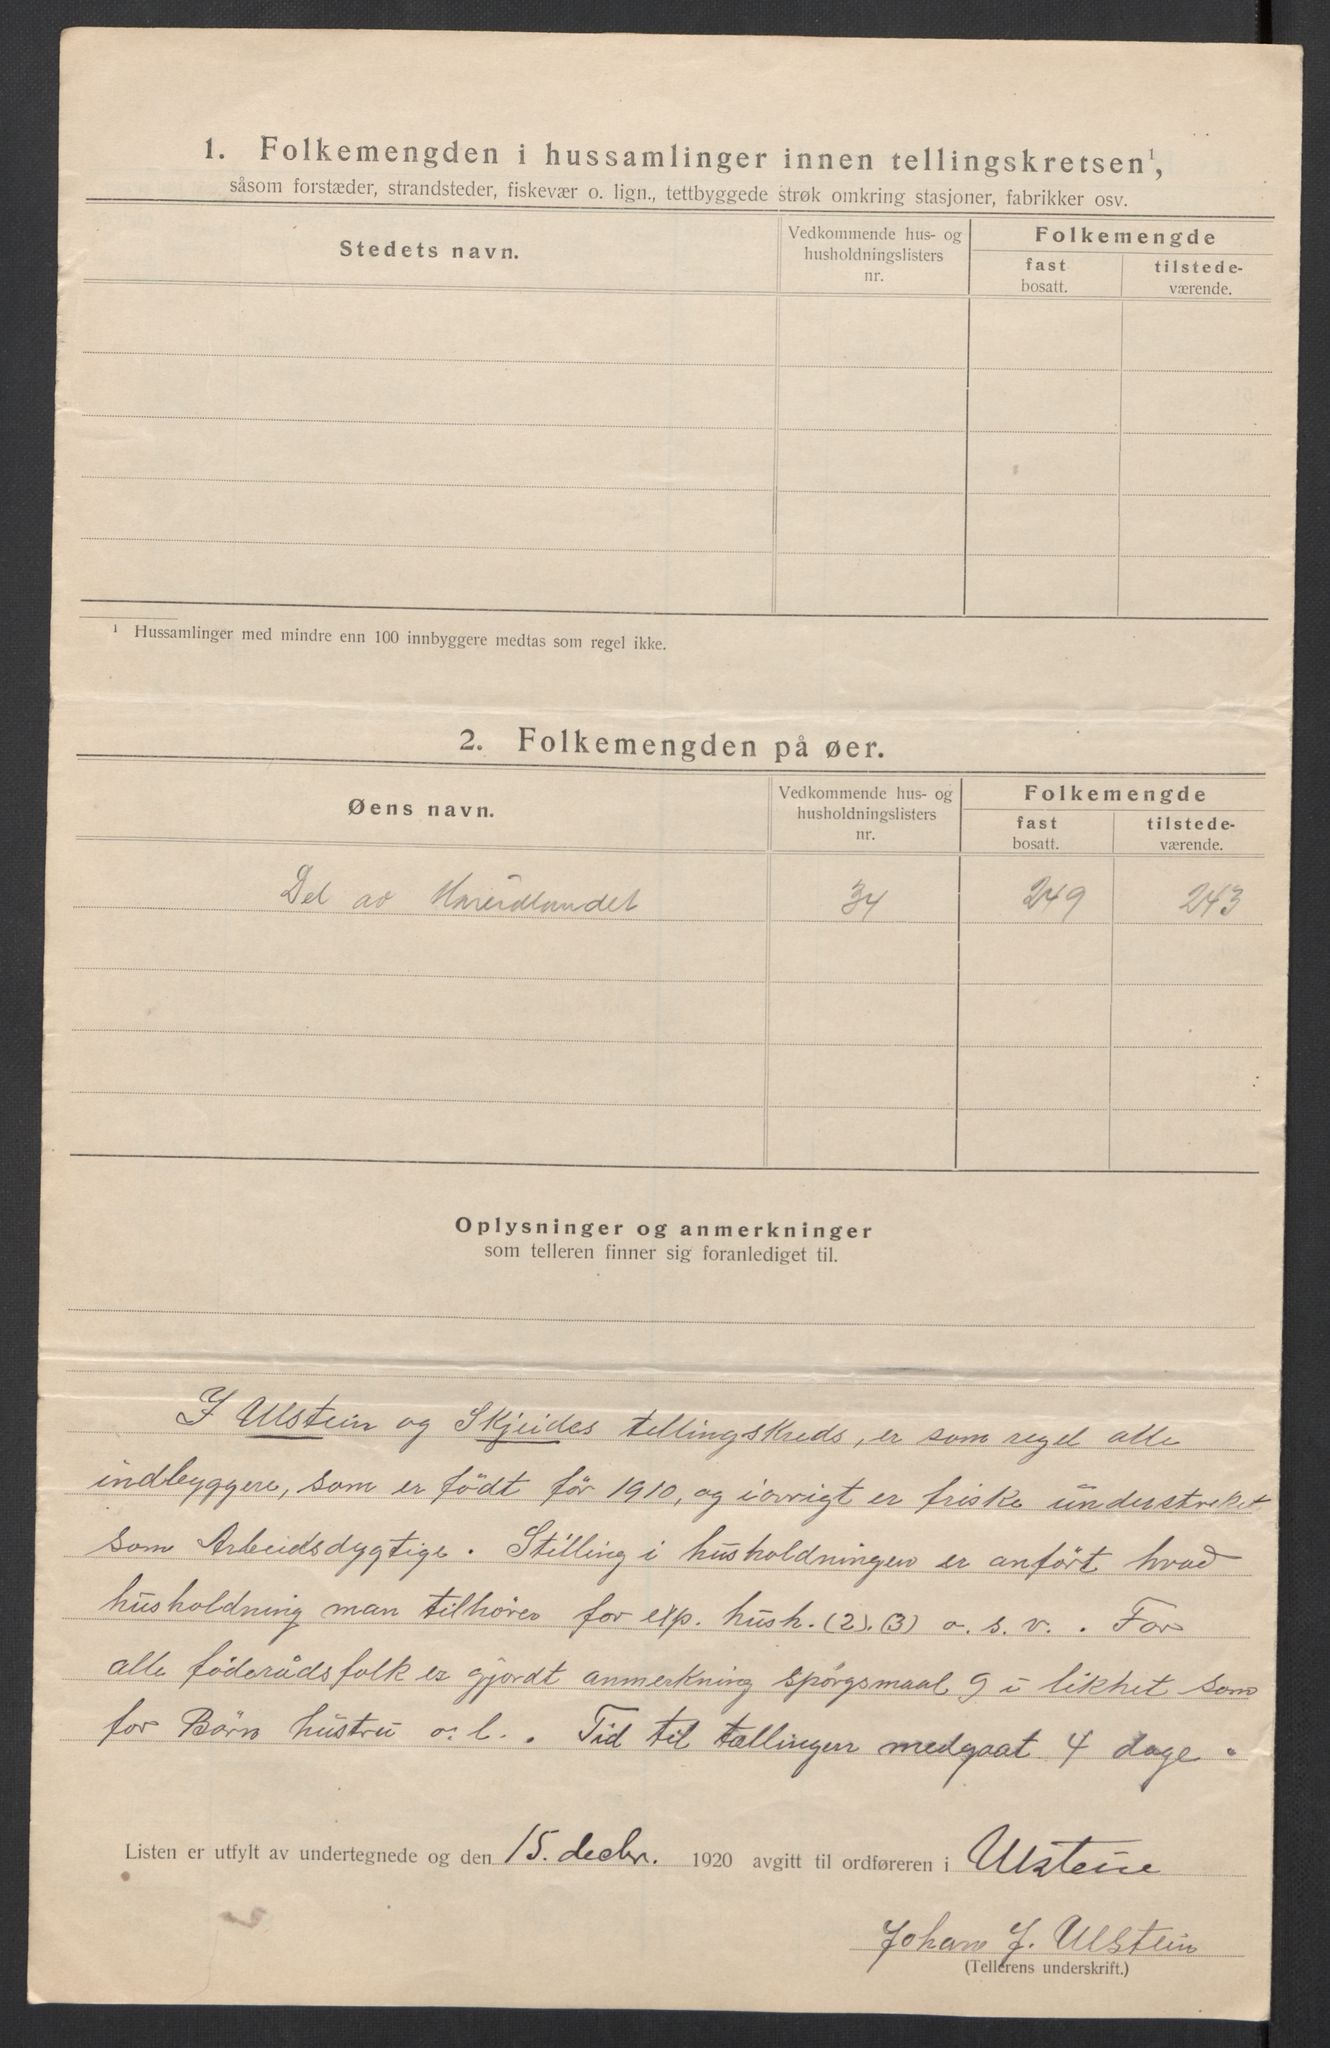 1. Folkemengden i hussamlinger innen tellingskretsen¹,
såsom forstæder, strandsteder, fiskevær o. lign., tettbyggede strøk omkring stasjoner, fabrikker osv.
Stedets navn.
Vedkommende hus- og
husholdningslisters
nr.
Folkemengde
fast
bosatt.
tilstede-
værende.
¹ Hussamlinger med mindre enn 100 innbyggere medtas som regel ikke.
2. Folkemengden på øer.
Øens navn.
Vedkommende hus- og
husholdningslisters
nr.
Folkemengde
fast
bosatt.
tilstede-
værende.
Del av Hareidlandet 34 249 243
Oplysninger og anmerkninger
som telleren finner sig foranlediget til.
I Ulstein og Skjeides tellingskreds, er som regel alle
indbyggere, som er födt för 1910, og iövrigt er friske understreket
som Arbeidsdygtige. Stilling i husholdningen er anfört hvad
husholdning man tilhörer for exp. hush. (2). (3) o. s. v. . For
alle föderådsfolk er gjordt anmerkning spörgsmaal 9 i likhet som
for Börn hustru o. l. . Tid til tællingen medgaat 4 dage.
Listen er utfylt av undertegnede og den 15. decbr. 1920 avgitt til ordføreren i Ulstein
Johan J. Ulstein
(Tellerens underskrift.)